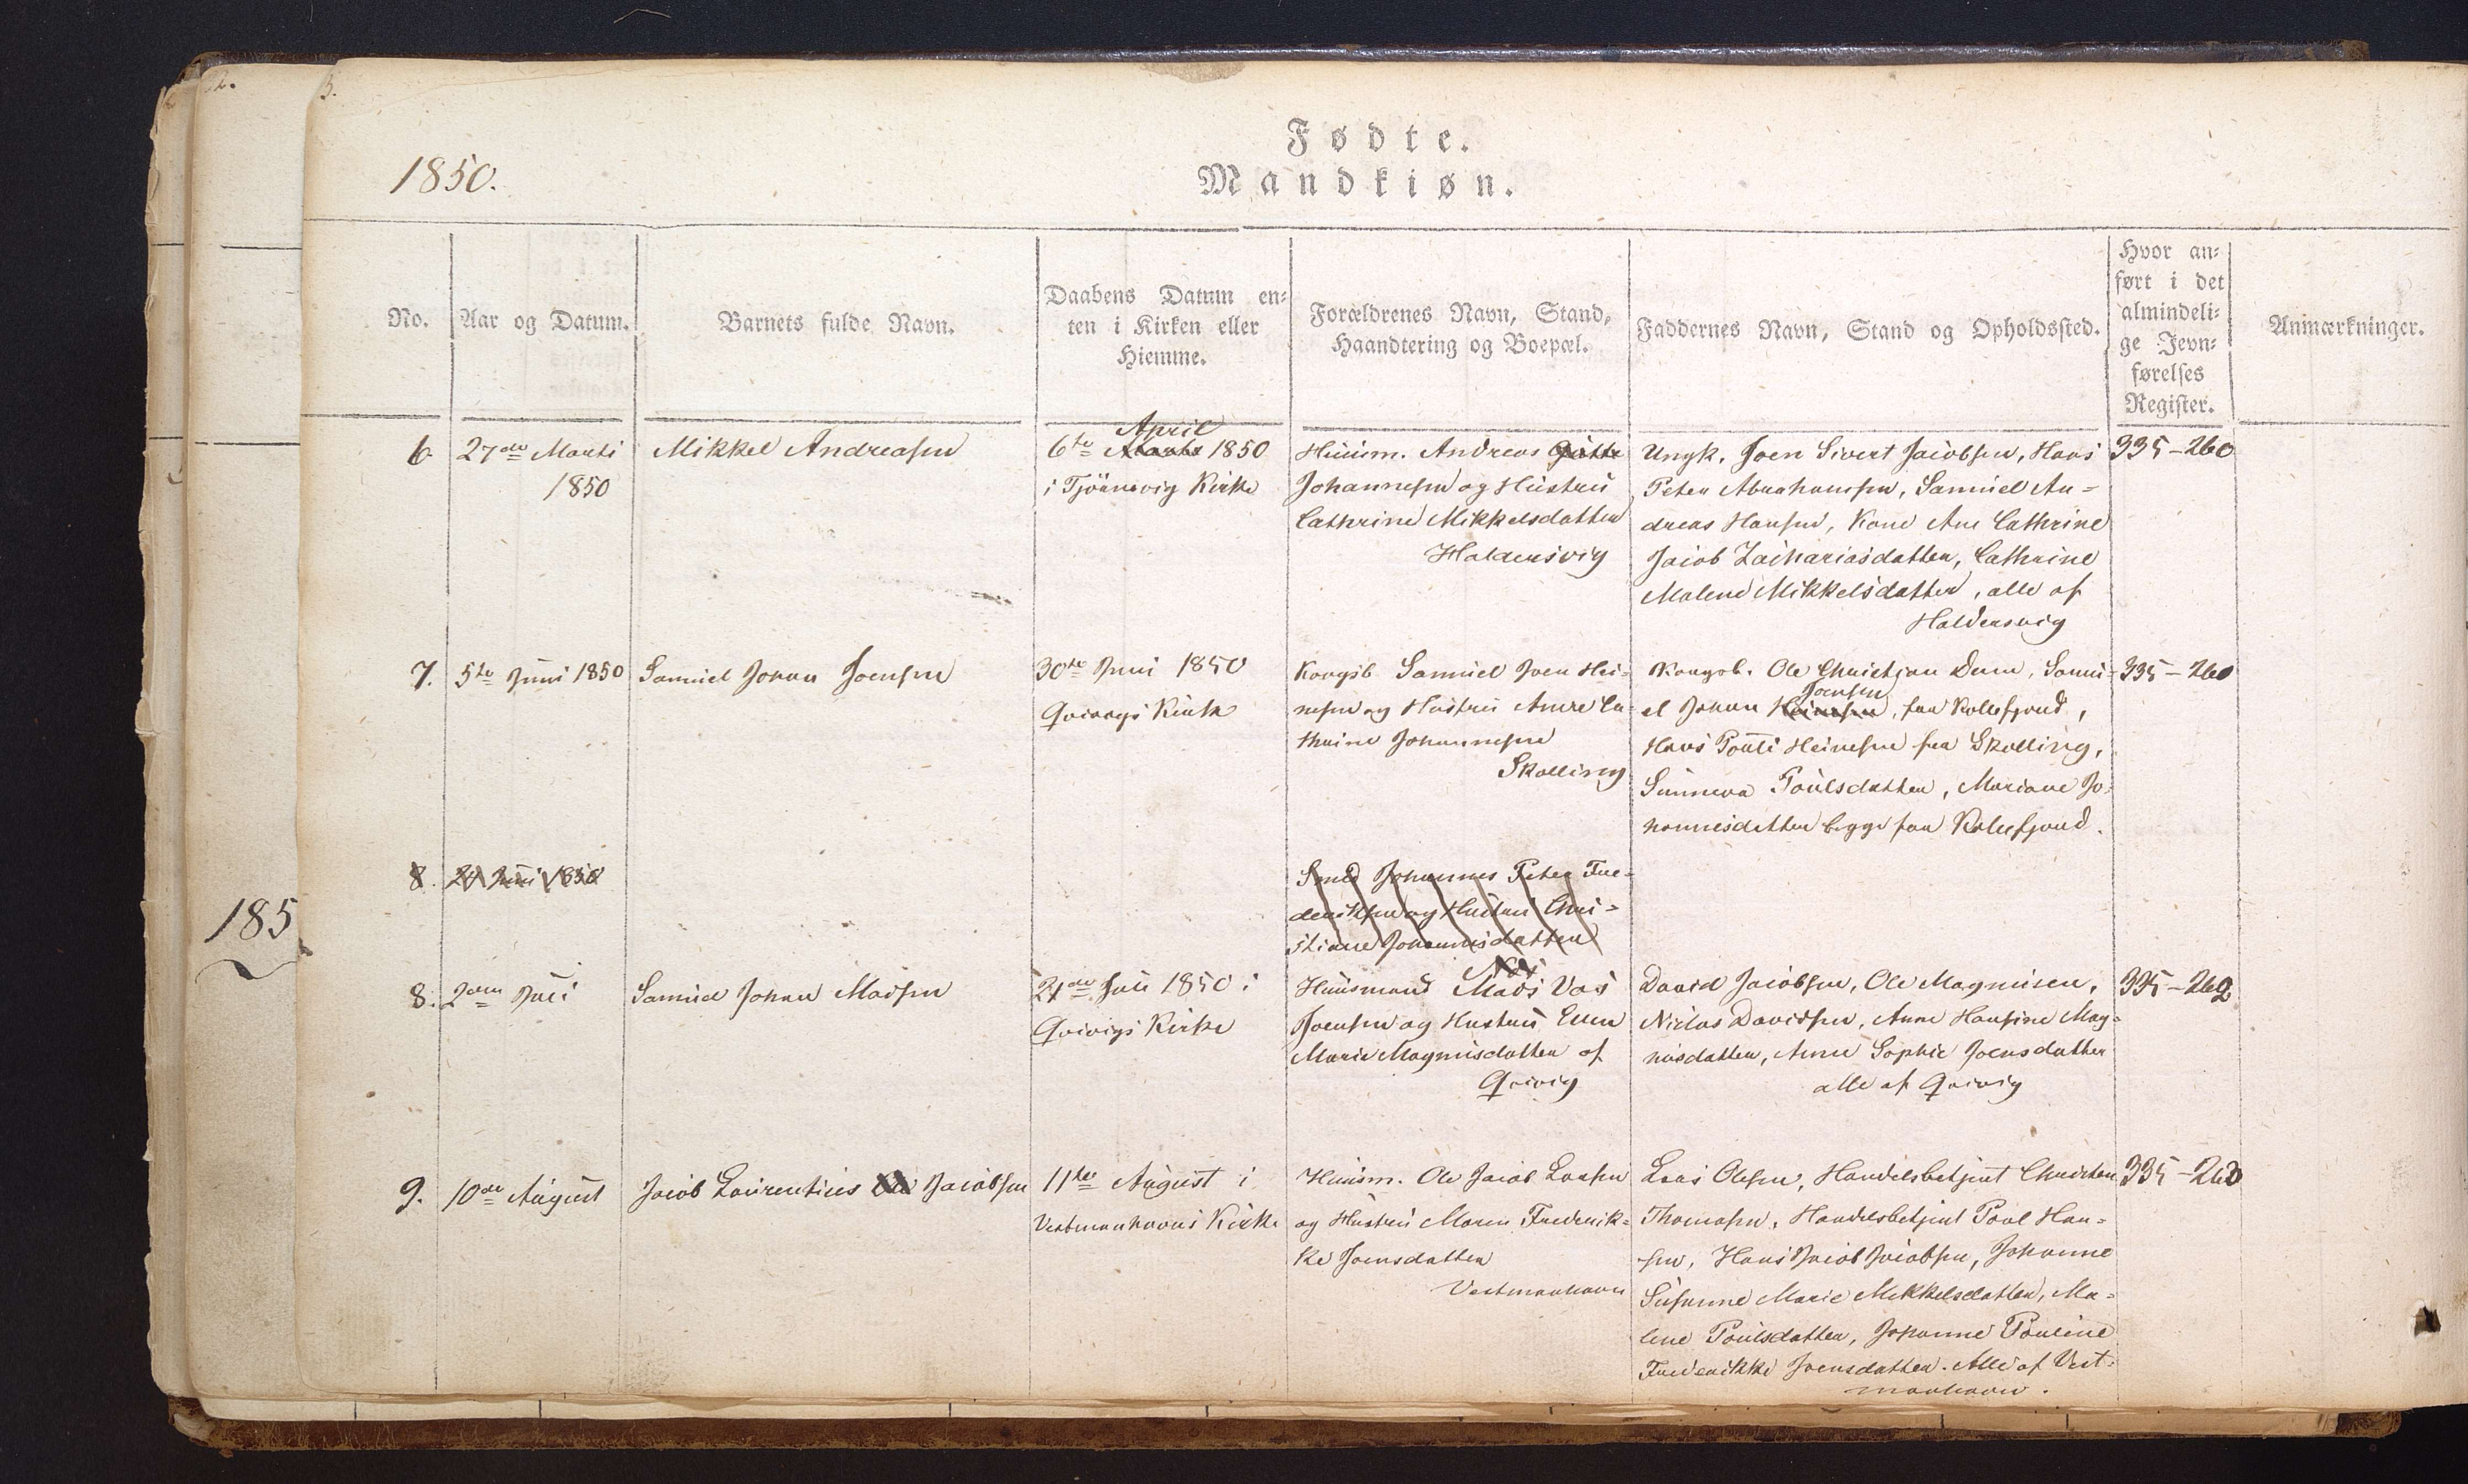 2.
3.
Fødte.
1850.
Mandkiøn.
No.
Aar og Datum.
Barnets fulde Navn.
Daabens Datum en=
ten i Kirken eller
Hiemme.
Forældrenes Navn, Stand,
Haandtering og Boepæl.
Faddernes Navn, Stand og Opholdssted.
Hvor an=
ført i det
almindeli=
ge Jevn=
førelses
Register.
Anmærkninger.
6
27de Marti
1850
Mikkel Andreasen
April
6te Marts 1850
i Tjörnevig Kirke
Huusm. Andreas
Johannesen og Hustru
Cathrine Mikkelsdatter
Haldersvig
Ungk. Joen Sivert Jacobsen, Hans
Peter Abrahamsen, Samuel An=
dreas Hansen, Kone Ane Cathrine
Jacob Zachariasdatter, Cathrine
Malene Mikkelsdatter, alle af
Haldersvig
335-260
7.
5te Juni 1850
Samuel Johan Joensen
30te Juni 1850
Qvivigs Kirke
Kongsb Samuel Joen Hei=
nesen og Hustru Anne Ca=
thrine Johannesen
Skælling
Kongsb. Ole Christian Dam, Samu=
Joensen
el Johan Heinesen, fra Kollefjord,
Hans Pouli Heinesen fra Skælling,
Sunneva Poulsdatter, Mariane Jo=
hannesdatter begge fra Kollefjord.
335-260
8.
24 Juni 1850
Smed Johannes Peter Fre=
deriksen og Hustru Chri=
stiane Johannesdatter
185
8.
2den Juli
Samuel Johan Madsen
21de Juli 1850 i
Qvivigs Kirke
Huusmand Mads Vas
Joensen og Hustru Ellen
Marie Magnusdatter af
Qvivig
David Jacobsen, Ole Magnusen,
Niclas Davidsen, Anne Hansine Mag=
nusdatter, Anne Sophie Joensdatter
alle af Qvivig
335-262
9.
10de August
Jacob Laurentius Ole Jacobsen
11te August i
Vestmanhavns Kirke
Huusm. Ole Jacob Larsen
og Hustru Maren Frederik=
ke Joensdatter
Vestmanhavn
Lars Olesen, Handelsbetjent Christen
Thomasen, Handelsbetjent Poul Han=
sen, Hans Jacob Jacobsen, Johanne
Susanne Marie Mikkelsdatter, Ma=
lene Poulsdatter, Johanne Pouline
Frederikke Joensdatter. Alle af Vest=
manhavn.
335-260